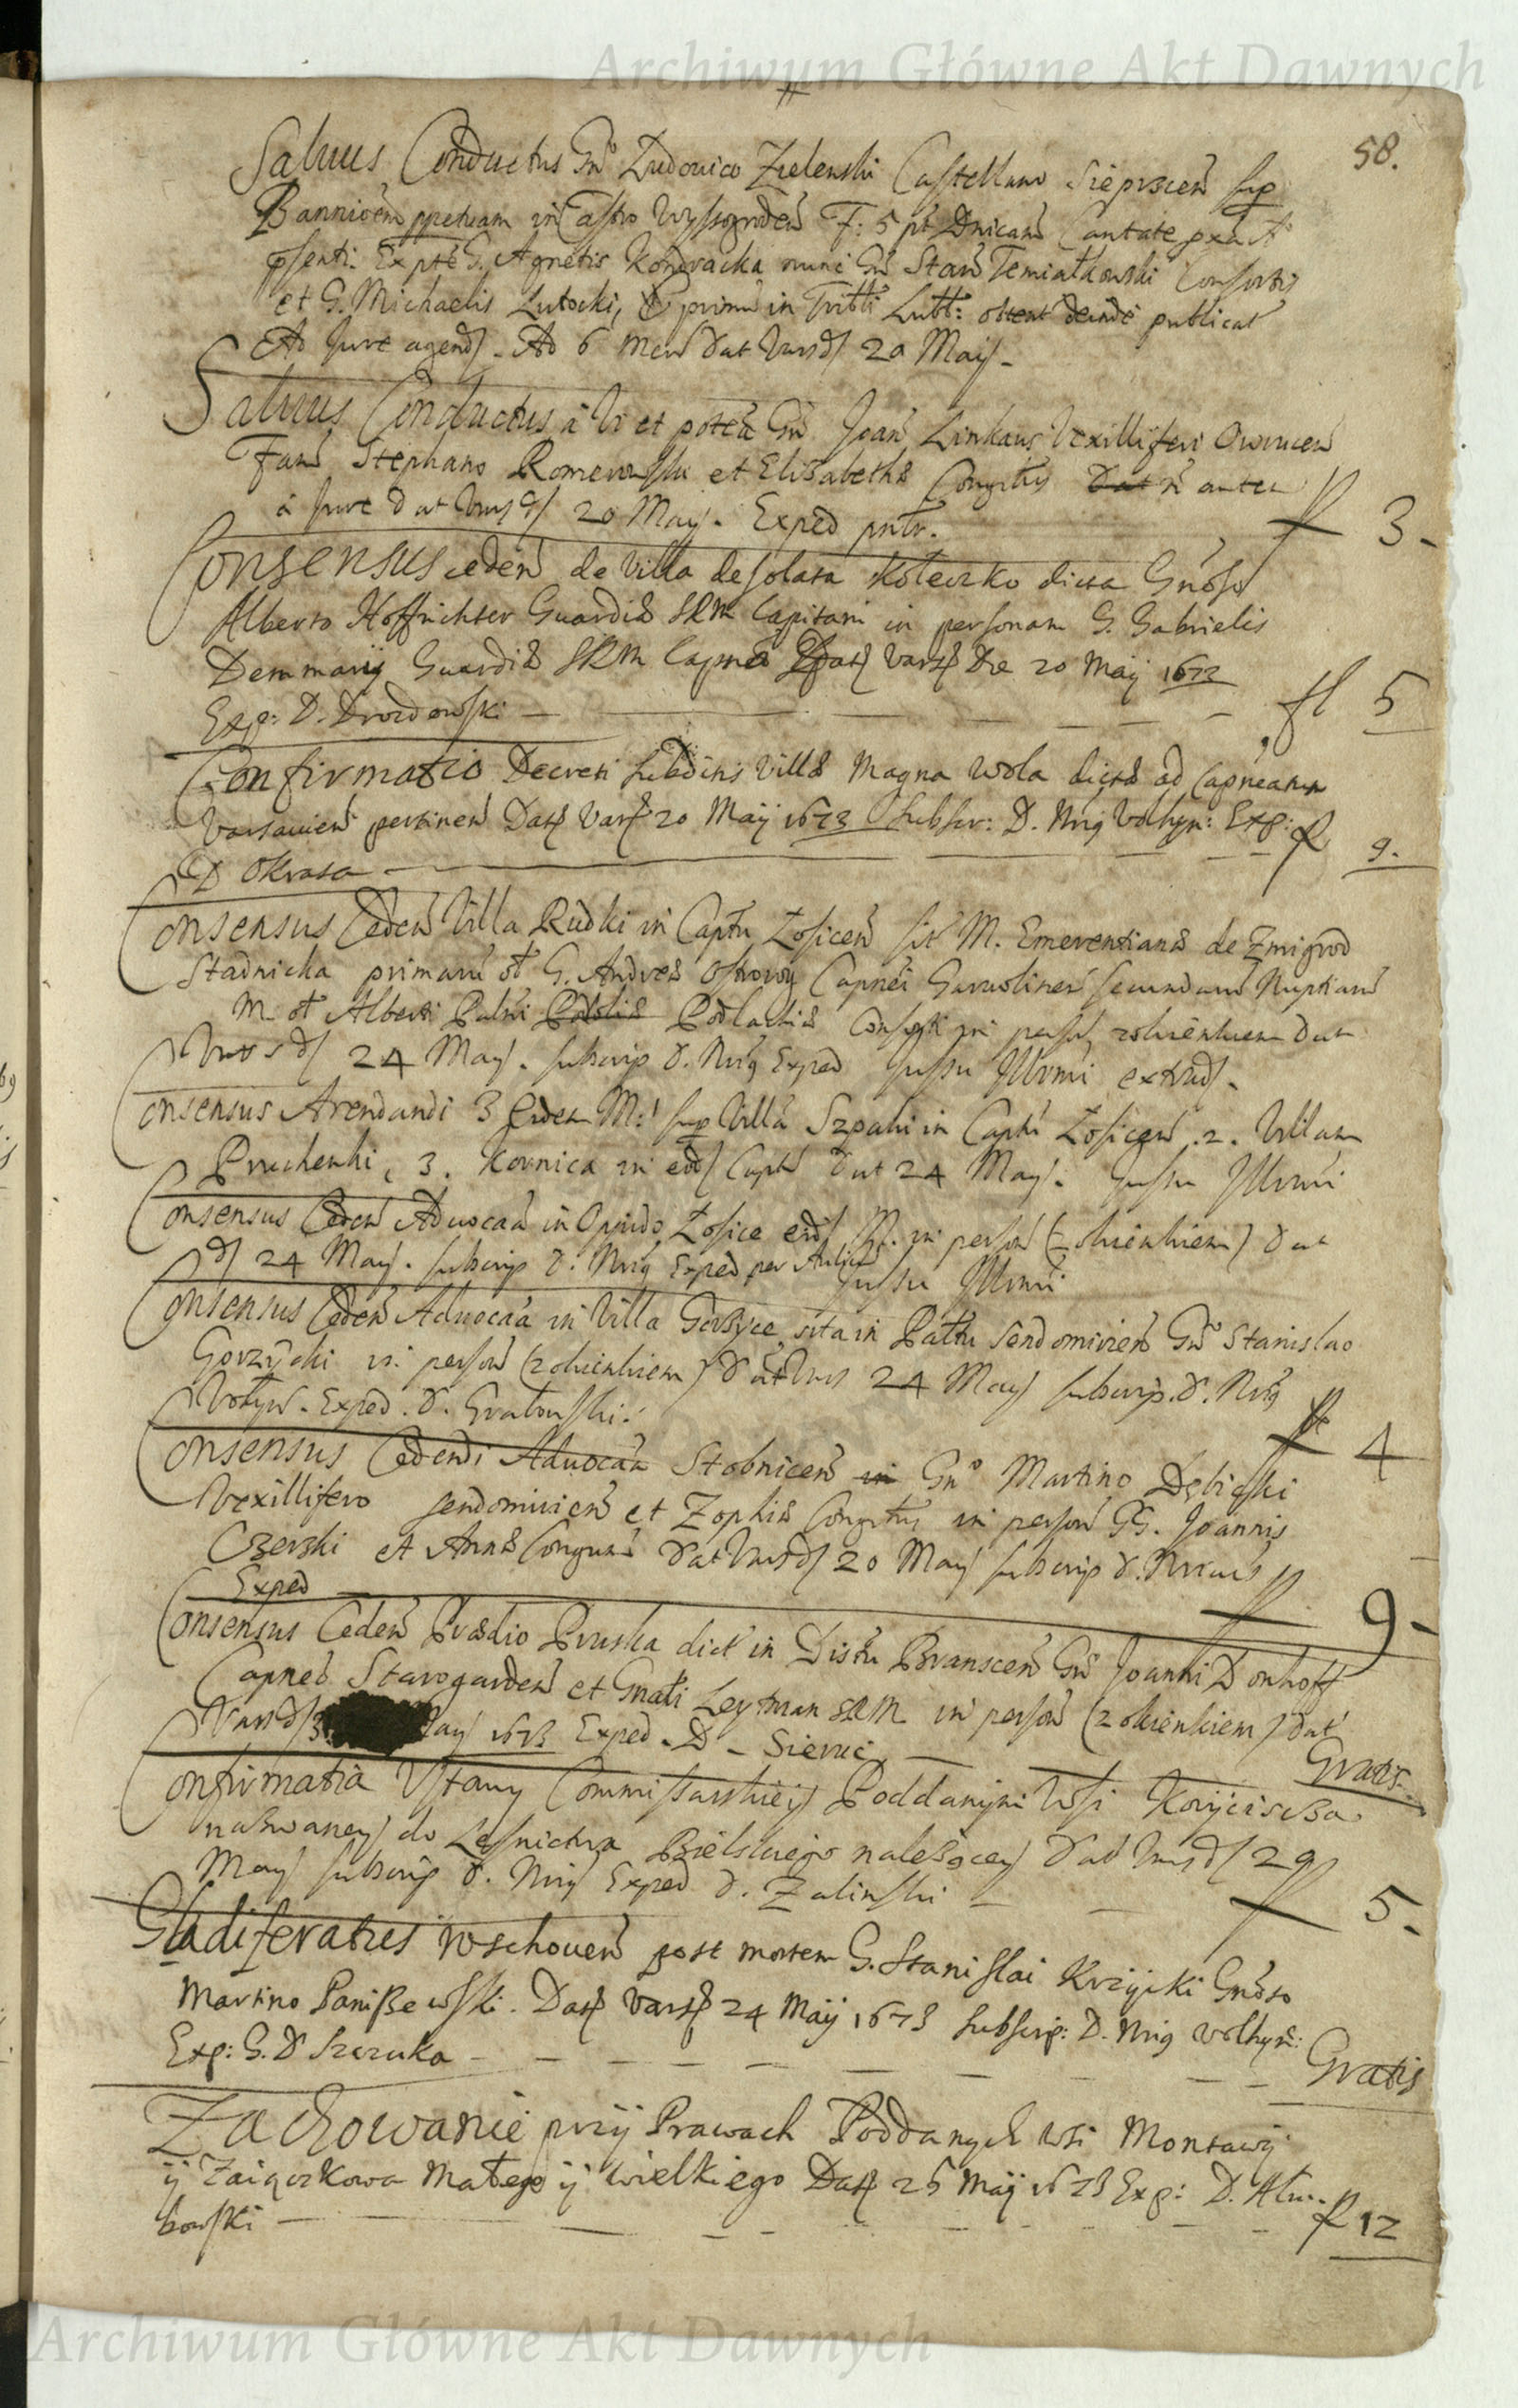 Archiwum Główne Akt Dawnych
58.
Salvus Conductus Gnō Ludovico Zielenski Castellano Sieprscen sup
Bannioem ppetuam in Castro Wyssogroden F: 5 pt Dnicam Cantate
Ex pte G. Agnetis Kondracka nunc Gn Stan Temiatkowski Consortis
et G. Michaelis Lutocki, primu in Trtti Lubl: deinde publicat
Ad Jure agend. Ad 6 men dat Vars 20 Maij -
Salvus Conductus à Vi et potea Gn Joan Linkaus Vexilliferi Owrucen
Fam Stephano et Elisabetha Congtis Dat n autem
à Jure dat Vars 20 Maij. Exped
fl 3 -
Consensus ceden de Villa desolata Koteczko dicta Gnoso
Alberto Hoffrichter Guardiæ SRM Capitani in personam G. Gabrielis
Demmariy Guardiæ SRM Capnei Dat Vars Die 20 Maij 1673
Exp: D. Drozdowski —
fl 5
Confirmatio Decreti subditis Villæ Magna Wola dictæ ad Capneatum
Varsavien pertinen Dat Vars 20 Maij 1673 Subscr: D. Nrig Volhyn: Exp:
D Okrasa —
fl 9.
Consensus Ceden Villa Rudki in Captu Łosicen sit M. Emerentianæ de Zmigrod
Stadnicka primaru ol G. Andreæ Ostrorog Capnei Garwolinen secundaru Nuptiaru
M. ol Alberti Palni Podlachiæ Consorti in person z okienkiem dat
24 Maij. subscrip d. Nrig Exped Jussu Illrmi extrad.
Consensus Arendandi 3 Eidem M: sup Villa Szpaki in Captu Łosicen .2. Villam
Pruchenki, 3. Kornica in eod Captu dat 24 Maij. Jussu Illrmi
Consensus Ceden Advocaa in Oppido Łosice eid M. in person (z okienkiem) dat
24 Maij. subscrip d. Nrig Exped per Jussu Illrmi
Consensus Ceden Advocaa in Villa Gorzyce sita in Pattu Sendomirien Gnō Stanislao
Gorzycki in person (z okienkiem) dat Vars 24 Maij subscrip. d. Nrig
Wołyn. Exped. d. Grabowski.
fl 4
Consensus Cedendi Advocaa Stobnicen in Gnō Martino Dębicki
Vexillifero Sendomirien et Zophiæ Congtis in person GG. Joannis
Czerski et Annæ Congum dat Vars 20 Maij subscrip d.
Exped
fl 9 -
Consensus Ceden Prædio Pruska dict in Distu Branscen Gn Joanni Donhoff
Capneo Starogarden et Gnali Leytman SRM in person (z okienkiem) dat
Vars Maij 1673 Exped. D - Sieruc
Gratis.
Confirmatia Ustawy Commissarskiey Poddanym Wsi Koryciscza
nazwaney do Lesnictwa Bielskiego nalezącey dat Vars 29
Maij subscrip d. Nrig Exped d. Zalinski —
fl 5 -
Gladiferatus Wschoven post mortem G. Stanislai Krzycki Gnoso
Martino Paniszewski. Dat Vars 24 Maij 1673 Subscrip: D. Nrig Volhyn:
Exp: G. D Szczuka —
Gratis
Zachowanie przy Prawach Poddanych Wsi Montawy
ij Zaiączkowa Małego ij Wielkiego Dat 25 Maij 1673 Exp: D.
bowski —
fl 12
Archiwum Główne Akt Dawnych